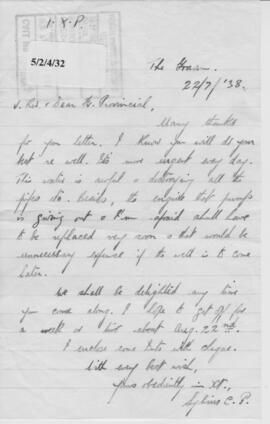 I. X. P.
5/2/4/32
The Graan.
22/7/'38.
V. Rev. & Dear Fr. Provincial,
Many thanks
for your letter. I know you will do your
best re well. It's more urgent every day.
This water is awful & destroying all the
pipes etc. Besides, the engine that pumps
is giving out & I'm afraid shall have
to be replaced very soon & that would be
unnecessary expense if the well is to come
later.
We shall be delighted any time
you come along. I hope to get off for
a week or but about Aug. 22nd.
I enclose some with cheque.
With every best wish,
Yours obediently in Xt.,
Sylvius C. P.